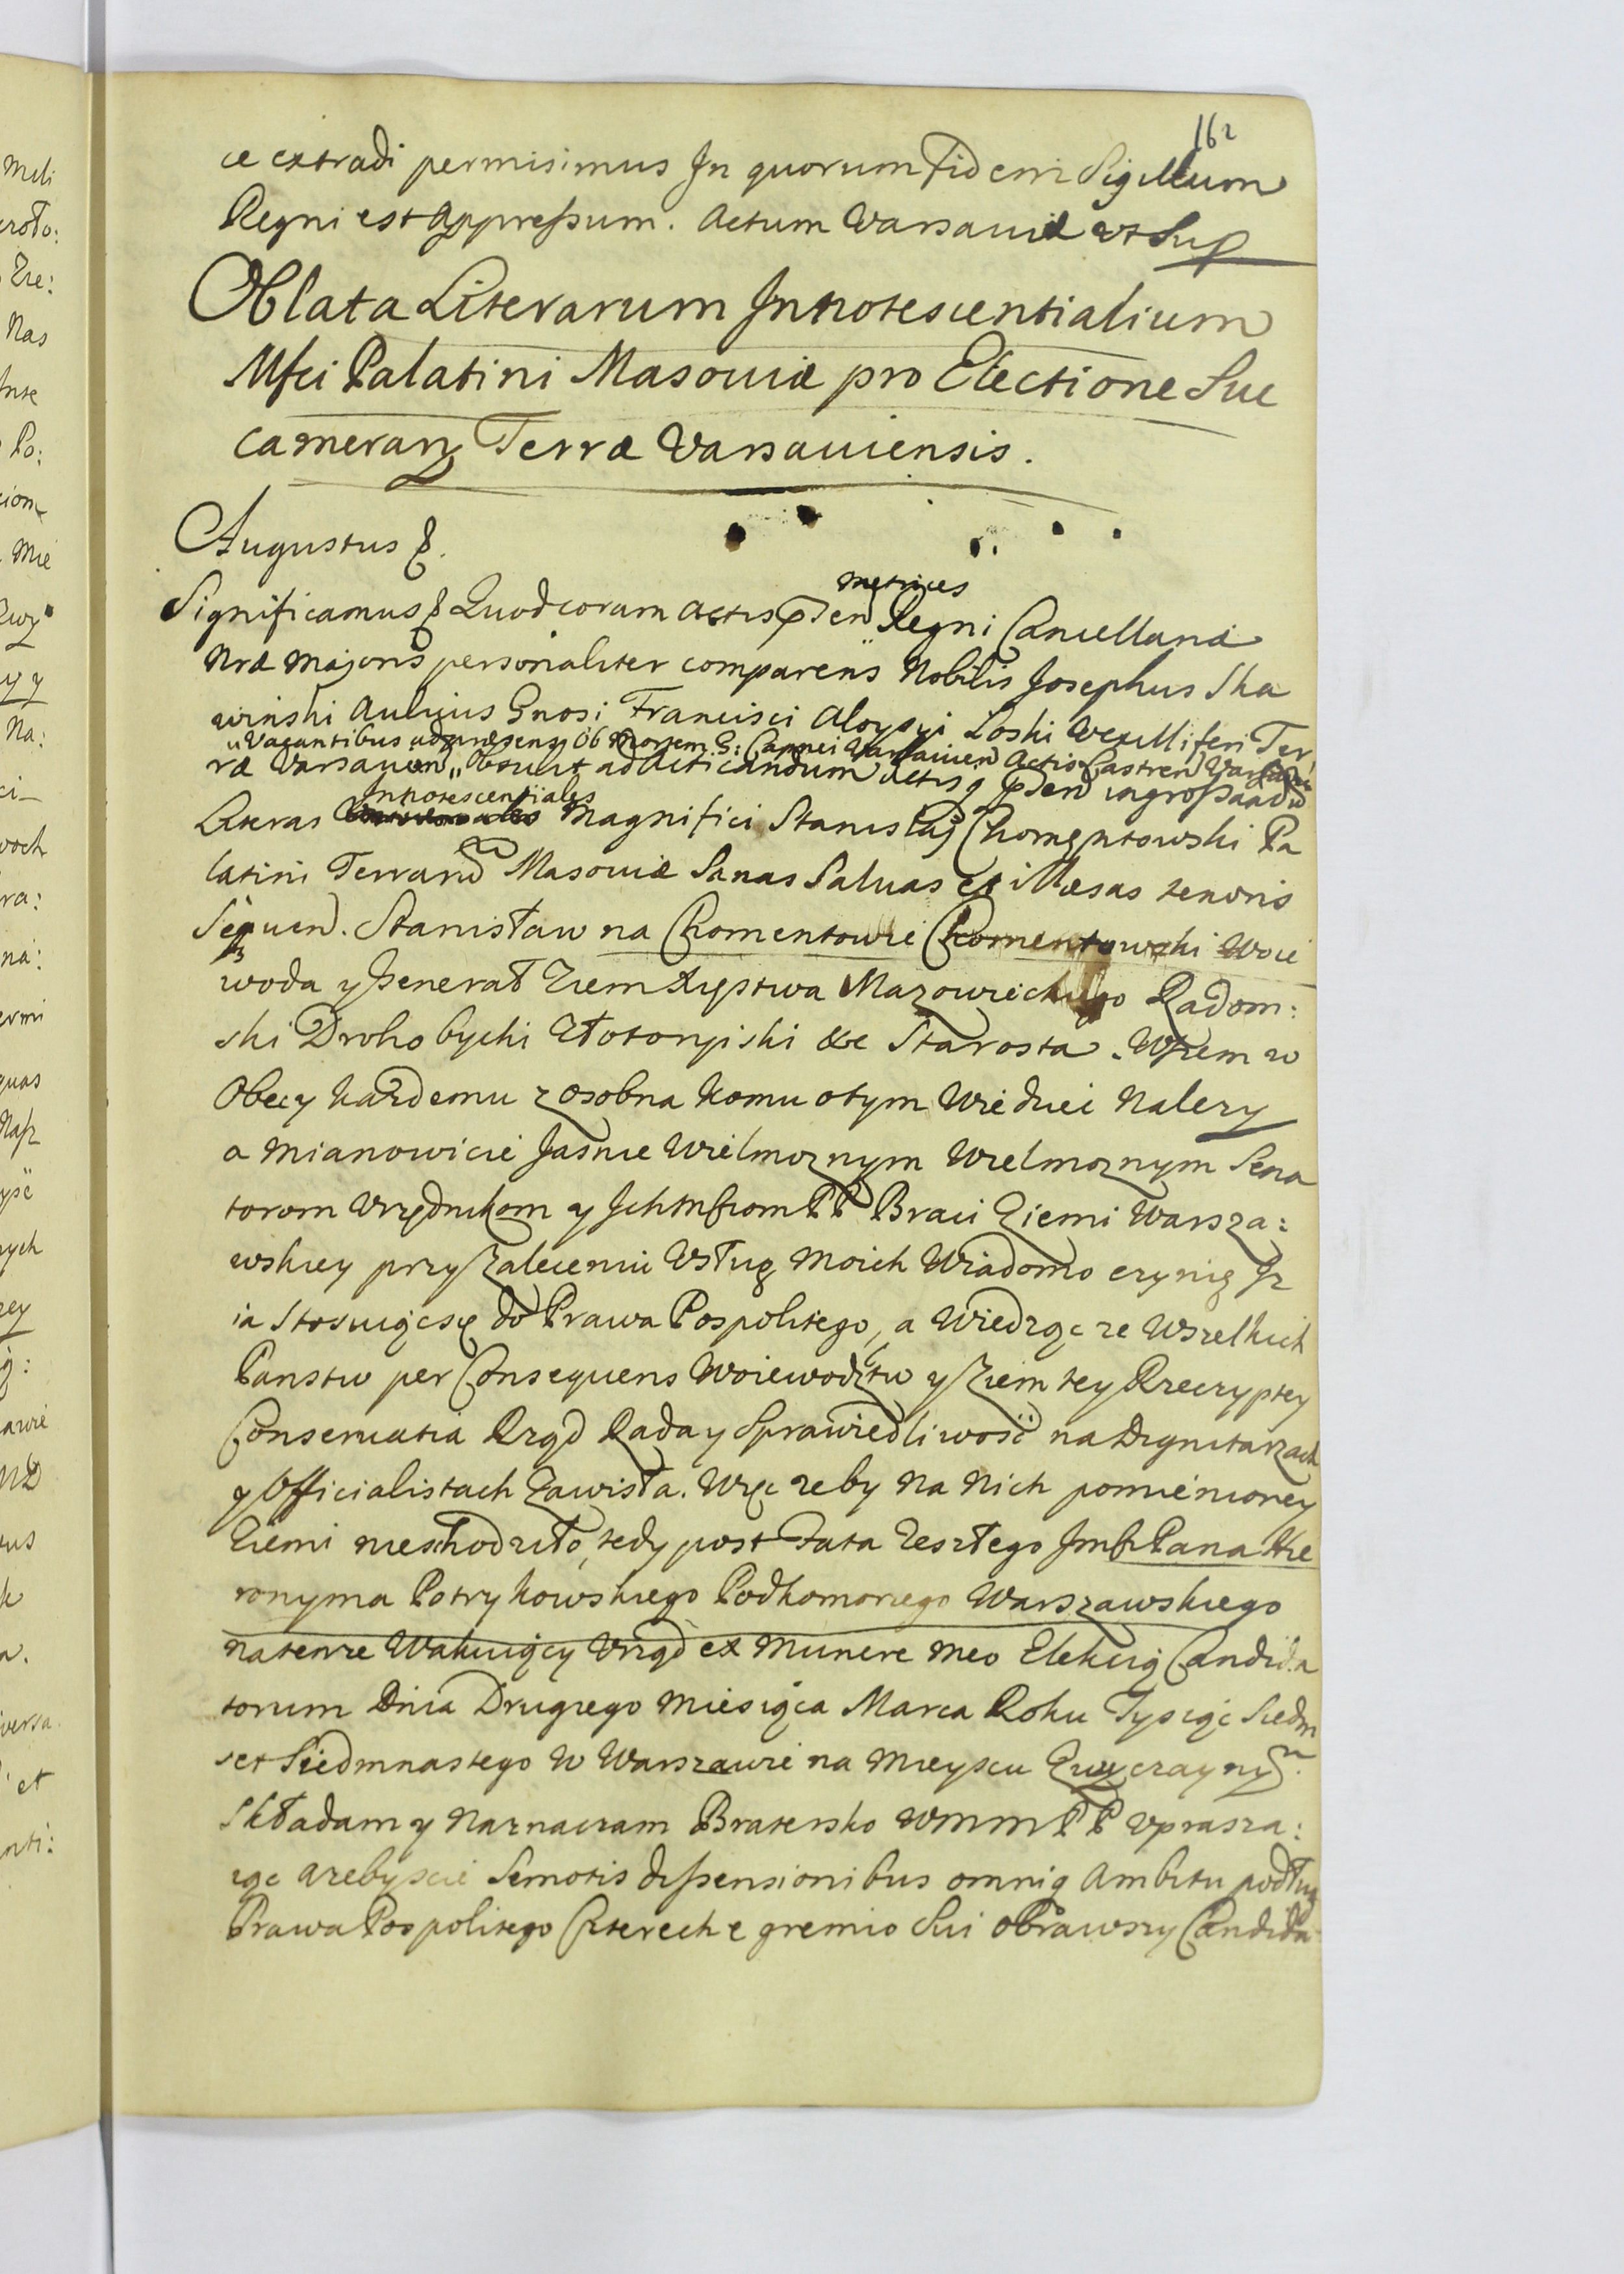 162
ce extradi permisimus Jn quorum fidem Sigillum
Regni est appressum. Actum Varsaviæ ut Sup
Oblata Literarum Jnnotescentialium
Mfci Palatini Masoviæ pro Electione Suc
camerarij Terræ Varsaviensis.
Augustus &.
metrices
Significamus & Quod coram actis pñden Regni Cancellariæ
Nræ Majoris personaliter comparens Nobilis Josephus Ska
winski Aulicus Gnosi Francisci Aloysii Loski Vexilliferi Ter
Vacantibus ad præsens Ob Mortem G: Cappnei Varsavien Actis Castren Varsavien
ræ Varsavien Obtulit ad Acticandum Actis q pñden ingrossandu
Jnnotescentiales
Literas Magnifici Stanislaj Chomentowski Pa
latini Terraru Masoviæ Sanas Salvas et illæsas tenoris
Sequen. Stanisław na Chomentowie Chomentowski Woie
woda y Generał Ziem Xięstwa Mazowieckiego Radom:
ski Drohobycki Złotoryiski &c Starosta. Wszem w
Obec y każdemu z osobna komu o tym Wiedziec Nalezy
a Mianowicie Jasnie Wielmoznym Wielmoznym Sena
torom Vrzędnikom y Jchmsciom PP Braci Ziemi Warsza:
wskiey przy Zaleceniu Vsług Moich Wiadomo czynię Jz
ia Stosuiąc się do Prawa Pospolitego, a Wiedząc ze Wszelkich
Panstw per Consequens Woiewodztw y Ziem tey Rzeczyptey
Conservatia Rząd Rada y Sprawiedliwość na Dignitarzach
y Officialistach Zawisła. Więc zeby Na Nich pomienioney
Ziemi nieschodziło, tedy post Fata Zeszłego Jmsci Pana Hie
ronyma Potrykowskiego Podkomorzego Warszawskiego
na tenze Wakuiący Vrząd ex Munere meo Elekcią Candida
torum Dnia Drugiego Miesiąca Marca Roku Tysiąc Siedm
set Siedmnastego W Warszawie na Mieyscu Zwyczayny.
Składam y Naznaczam Bratersko WmmPP Vprasza:
iąc azebyscie Semotis dissensionibus omniq Ambitu podług
Prawa Pospolitego Czterech e gremio Sui obrawszy Candida